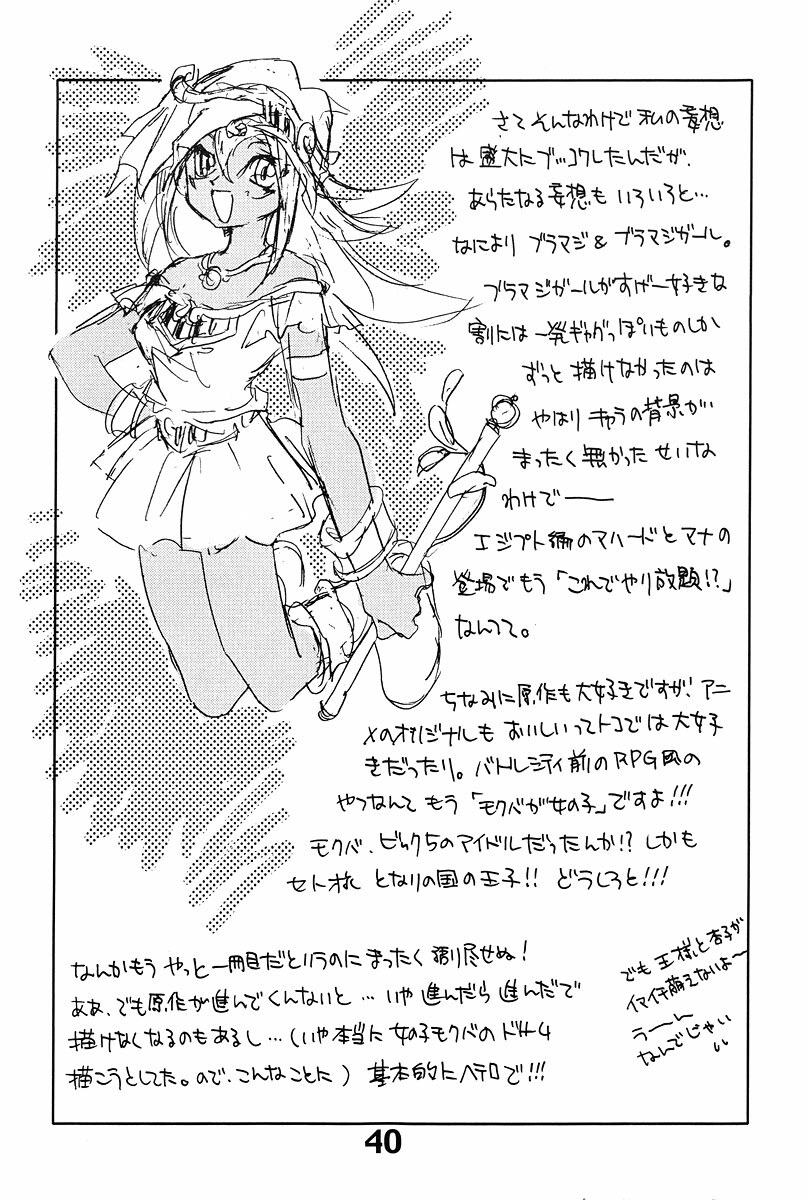 さて そんなわけで 私の妄想
は 盛大に ブッコワしたんだが、
あらたなる妄想も いろいろと…
なにより ブラマジ & ブラマジガール。
ブラマジガールがすげー好きな
割には 一発ギャグっぽいものしか
ずっと 描けなかったのは
やはり キャラの背景が
まったく 無かった せいな
わけで――
エジプト編のマハードとマナの
登場でもう 「これでやり放題!?」
なんてて。
ちなみに原作も大好きですが、アニ
メのオリジナルも おいしいってトコでは大好
きだったり。バトルシティ前のRPG風の
やつなんて もう 「モクバが女の子」ですよ!!!
モクバ、ビック5のアイドルだったんか!? しかも
セトされ となりの国の王子!! どうしろと!!!
なんかもう やっと一冊目だというのに まったく 語り尽せぬ!
ああ、でも原作が進んでくんないと … いや 進んだら 進んだで
描けなくなるのもあるし…(いや本当に 女の子モクバの ドリーム
描こうとしてた。ので、こんなことに) 基本的にヘテロで!!!
でも 王様と杏子が
イマイチ萌えないよ〜
うーん
なんでじゃい
40